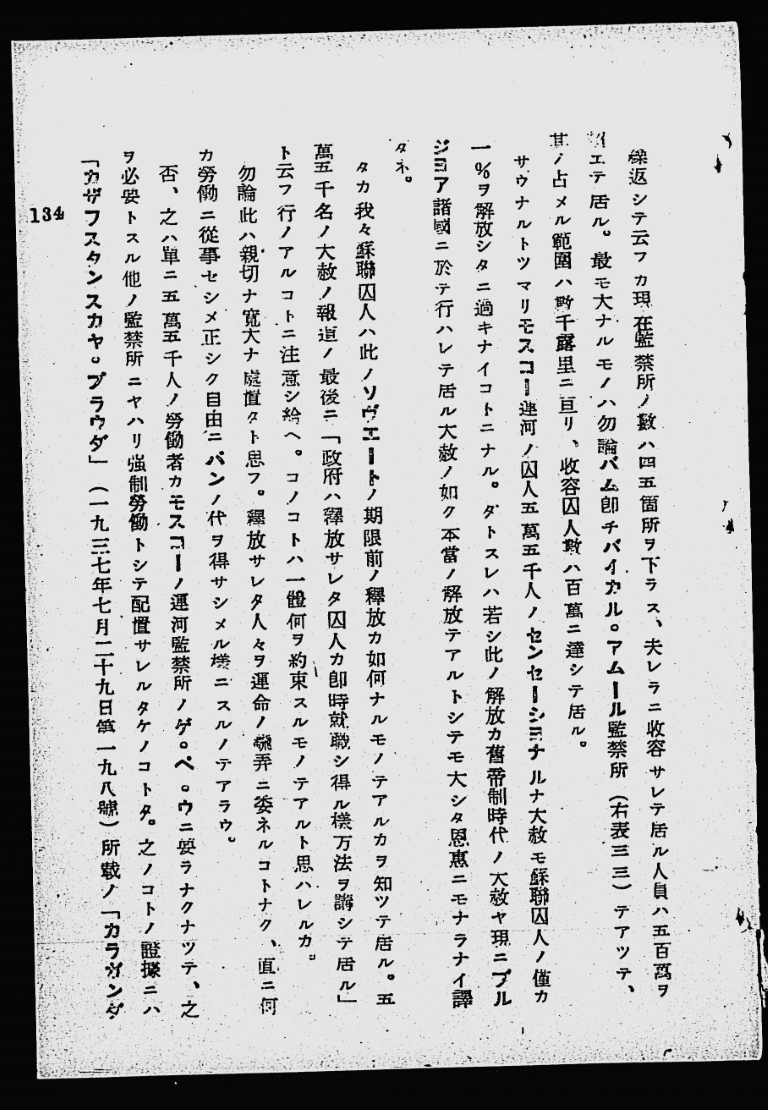 繰返シテ云フカ現在監禁所ノ數ハ四五箇所ヲ下ラス、夫レラニ收容サレテ居ル人員ハ五百萬ヲ
超エテ居ル。最モ大ナルモノハ勿論バム卽チバイカル。アムール監禁所（右表三三）テアツテ、
其ノ占メル範圍ハ數千露里ニ亘リ、收容囚人數ハ百萬ニ達シテ居ル。
サウナルトツマリモスコー運河ノ囚人五萬五千人ノセンセーシヨナルナ大赦モ蘇聯囚人ノ僅カ
一％ヲ解放シタニ過キナイコトニナル。ダトスレハ若シ此ノ解放カ舊帝制時代ノ大赦ヤ現ニブル
ジヨア諸國ニ於テ行ハレテ居ル大赦ノ如ク本當ノ解放テアルトシテモ大シタ恩惠ニモナラナイ譯
タネ。
タカ我々蘇聯囚人ハ此ノソヴエートノ期限前ノ釋放カ如何ナルモノテアルカヲ知ツテ居ル。五
萬五千名ノ大赦ノ報道ノ最後ニ「政府ハ釋放サレタ囚人カ卽時就職シ得ル樣方法ヲ講シテ居ル」
ト云フ行ノアルコトニ注意シ給ヘ。コノコトハ一體何ヲ約束スルモノテアルト思ハレルカ。
勿論此ハ親切ナ寬大ナ處置タト思フ。釋放サレタ人々ヲ運命ノ飜弄ニ委ネルコトナク、直ニ何
カ勞働ニ從事セシメ正シク自由ニパンノ代ヲ得サシメル樣ニスルノテアラウ。
否、之ハ單ニ五萬五千人ノ勞働者カモスコーノ運河監禁所ノゲ。ペ。ウニ要ラナクナツテ、之
ヲ必要トスル他ノ監禁所ニヤハリ强制勞働トシテ配置サレルタケノコトタ。之ノコトノ證據ニハ
「カザフスタンスカヤ。プラウダ」（一九三七年七月二十九日第一九八號）所載ノ「カラガンダ
134